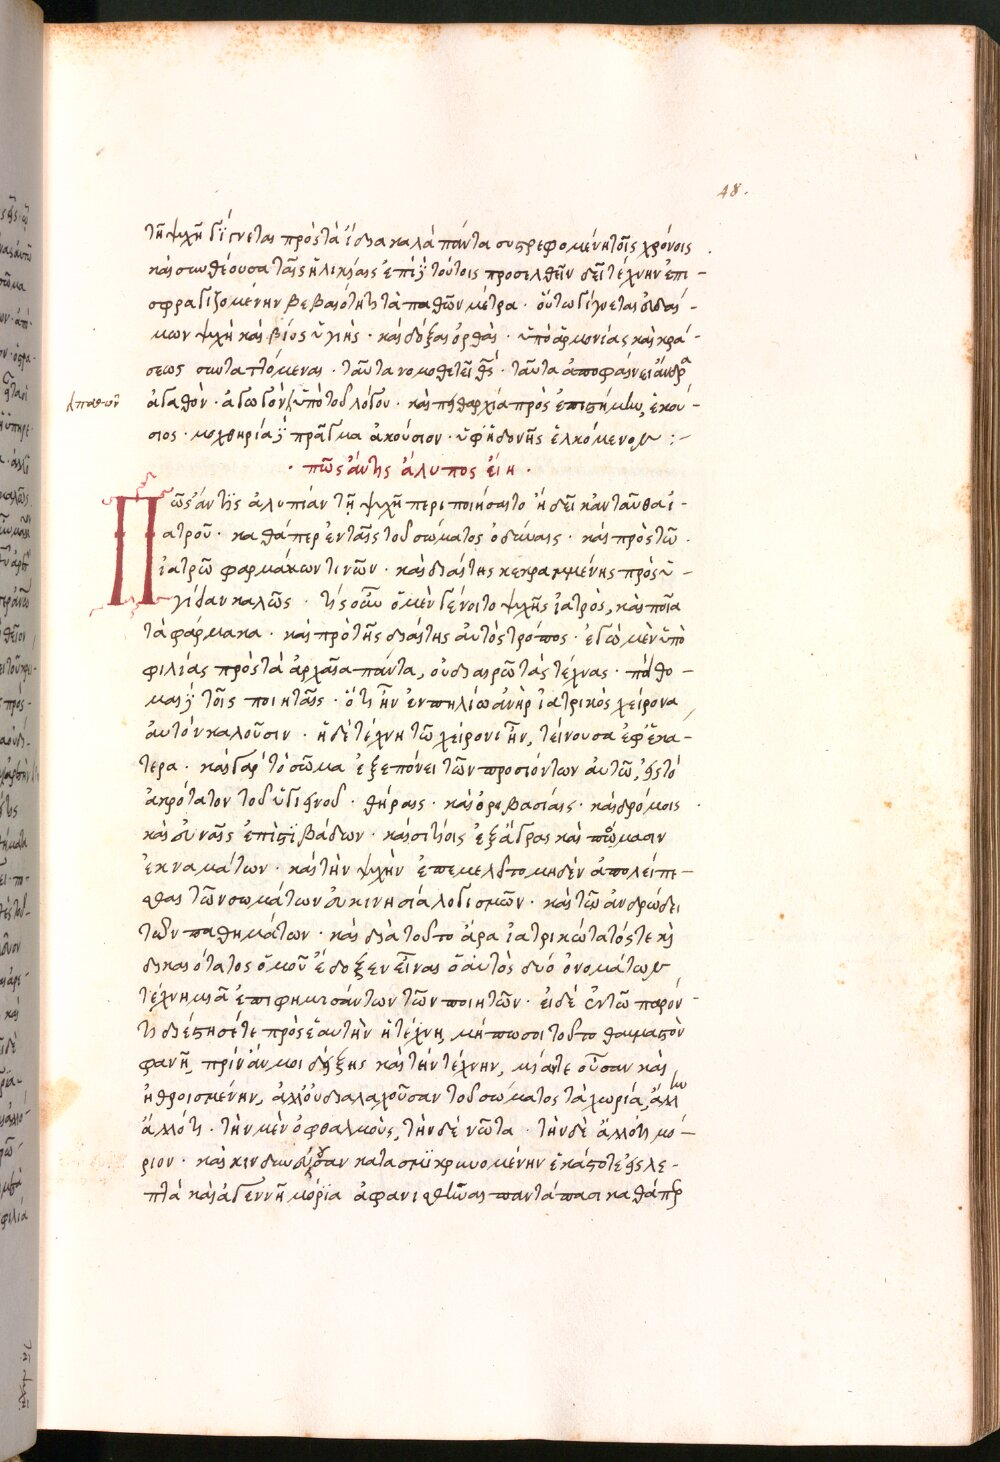 48.
τῇ ψυχῇ γίγνεται πρὸς τὰ ἴδια καλὰ πάντα συστρεφομένη τοῖς χρόνοις
καὶ συνθέουσα ταῖς ἡλικίαις ἐπὶ τούτοις προσελθεῖν δεῖ τέχνην ἐπι-
σφραγιζομένην βεβαιότητι τὰ παθῶν μέτρα · οὕτω γίγνεται εὐδαί-
μων ψυχὴ καὶ βίος ὑγιὴς · καὶ δόξαι ὀρθαὶ · ὑπὸ ἁρμονίας καὶ κρά-
σεως συναπτόμεναι · ταῦτα νομοθετεῖ θς · ταῦτα ἀποφαίνει ἄνδρα
ἀγαθὸν · ὑπὸ τοῦ λόγου · καὶ πειθαρχία πρὸς ἐπιστήμην, ἑκού-
σιος · μοχθηρία πρᾶγμα ἀκούσιον · ὑφ' ἡδονῆς ἑλκόμενον :-
· πῶς ἄν τις ἄλυπος εἴη ·
Πῶς ἄν τις ἀλυπίαν τῇ ψυχῇ περιποιήσαιτο ἢ δεῖ κἀνταῦθα ἰ-
ατροῦ · καθάπερ ἐν ταῖς τοῦ σώματος ὀδύναις · καὶ πρὸς τῷ
ἰατρῷ φαρμάκων τινῶν · καὶ διαίτης κεκραμμένης πρὸς ὑ-
γίειαν καλῶς · τίς οὖν ὁ μὲν γένοιτο ψυχῆς ἰατρὸς, καὶ ποῖα
τὰ φάρμακα · καὶ πρὸ τῆς διαίτης αὐτὸς τρόπος · ἐγὼ μὲν ὑπὸ
φιλίας πρὸς τὰ ἀρχαῖα πάντα, οὐ διαιρῶ τὰς τέχνας · πείθο-
μαι τοῖς ποιηταῖς · ὅτι ἦν ἐν πηλίῳ ἀνὴρ ἰατρικὸς χείρονα
αὐτὸν καλοῦσιν · ἡ δὲ τέχνη τῷ χείρονι ἦν, τείνουσα ἐφ' ἑκά-
τερα · καὶ γὰρ τὸ σῶμα ἐξεπόνει τῶν προσιόντων αὐτῷ, ἐς τὸ
ἀκρότατον τοῦ ὑγιεινοῦ · θήραις · καὶ ὀρειβασίαις · καὶ δρόμοις
καὶ εὐναῖς ἐπὶ στιβάδων · καὶ σιτίοις ἐξ ἄγρας καὶ πώμασιν
ἐκ ναμάτων · καὶ τὴν ψυχὴν ἐπεμελεῖτο μηδὲν ἀπολείπε-
σθαι τῶν σωμάτων εὐκινησίᾳ λογισμῶν · καὶ τῷ ἀνδρώδει
τῶν παθημάτων · καὶ διὰ τοῦτο ἄρα ἰατρικώτατός τε καὶ
δικαιότατος ὁμοῦ ἔδοξεν εἶναι ὁ αὐτὸς δυὸ ὀνομάτων
τέχνη μιᾷ ἐπιφημισάντων τῶν ποιητῶν · εἰ δὲ ἐν τῷ παρόν-
τι διέστησέ τε πρὸς ἑαυτὴν ἡ τέχνη, μή πω σοι τοῦτο θαυμαστὸν
φανῇ, πρὶν ἄν μοι δείξῃς καὶ τήν τέχνην, μίαν τε οὖσαν καὶ
ἠθροισμένην, ἀλλ' οὐ διαλαχοῦσαν τοῦ σώματος τὰ χωρία, ἄλλην
ἄλλο τι · τὴν μὲν ὀφθαλμοὺς, τὴν δὲ νῶτα · τὴν δὲ ἄλλο τι μό-
ριον · καὶ κινδυνεύουσαν κατὰ σμικρὸν κρινομένην ἑκάστοτε ἐς λε-
πτὰ καὶ ἀγεννῆ μόρια ἀφανισθῆναι παντάπασι καθάπερ